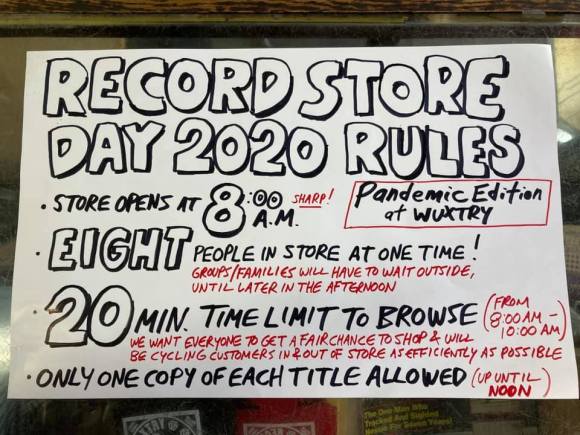 RECORD STORE
DAY 2020 RULES
• STORE OPENS AT 8:00 A.M. SHARP!
Pandemic Edition
at WUXTRY
• EIGHT PEOPLE IN STORE AT ONE TIME!
GROUPS/FAMILIES WILL HAVE TO WAIT OUTSIDE,
UNTIL LATER IN THE AFTERNOON
• 20 MIN. TIME LIMIT TO BROWSE (FROM 8:00 AM - 10:00 AM)
WE WANT EVERYONE TO GET A FAIR CHANCE TO SHOP & WILL
BE CYCLING CUSTOMERS IN & OUT OF STORE AS EFFICIENTLY AS POSSIBLE
• ONLY ONE COPY OF EACH TITLE ALLOWED (UP UNTIL NOON)
The One Man Who
Tracked And Sighted
Nessie For Seven Years!